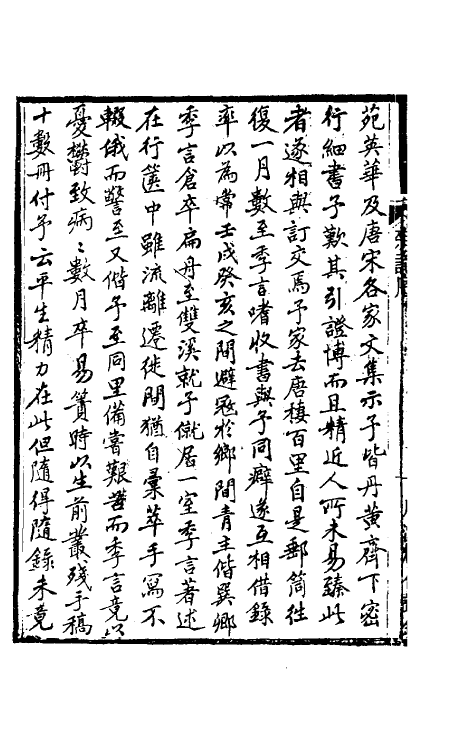 苑英華及唐宋各家文集示予皆丹黃齊下密
行細書予歎其引證博而且精近人所未易臻此
者遂相與訂交焉予家去唐棲百里自是郵筒往
復一月數至季言嗜收書與予同癖遂互相借錄
率以為常壬戌癸亥之間避寇於鄉間青主偕巽卿
季言倉卒扁舟至雙溪就予僦居一室季言著述
在行篋中雖流離遷徙間猶自彙萃手寫不
輟俄而警至又偕予至同里備嘗艱苦而季言竟以
憂鬱致病〻數月卒易簀時以生前叢殘手稿
十數冊付予云平生精力在此但隨得隨錄未竟